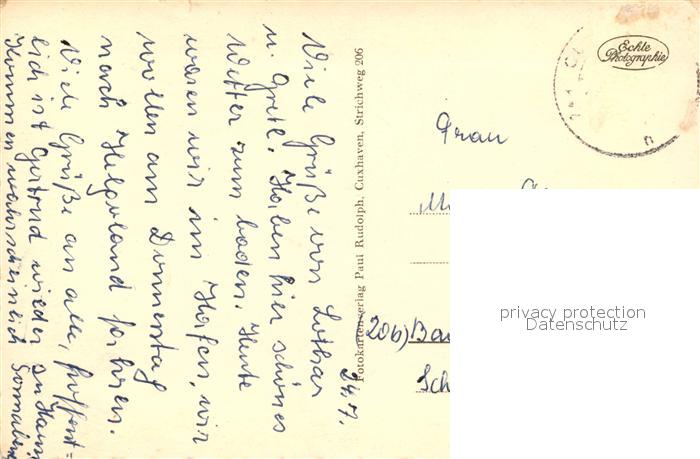 24.7.
Viele Grüße von Lothar
u. Gretl. Haben hier schönes
Wetter zum baden. Heute
waren wir im Hafen, wir
wollen am Donnerstag
nach Helgoland fahren.
Viele Grüße an alle, hoffent=
lich ist Gertrud wieder zu Haus,
Kommen wahrscheinlich
Fotokartenverlag Paul Rudolph, Cuxhaven, Strichweg 206
Echte
Photographie
Frau
(20b) Ba
Sch
privacy protection
Datenschutz